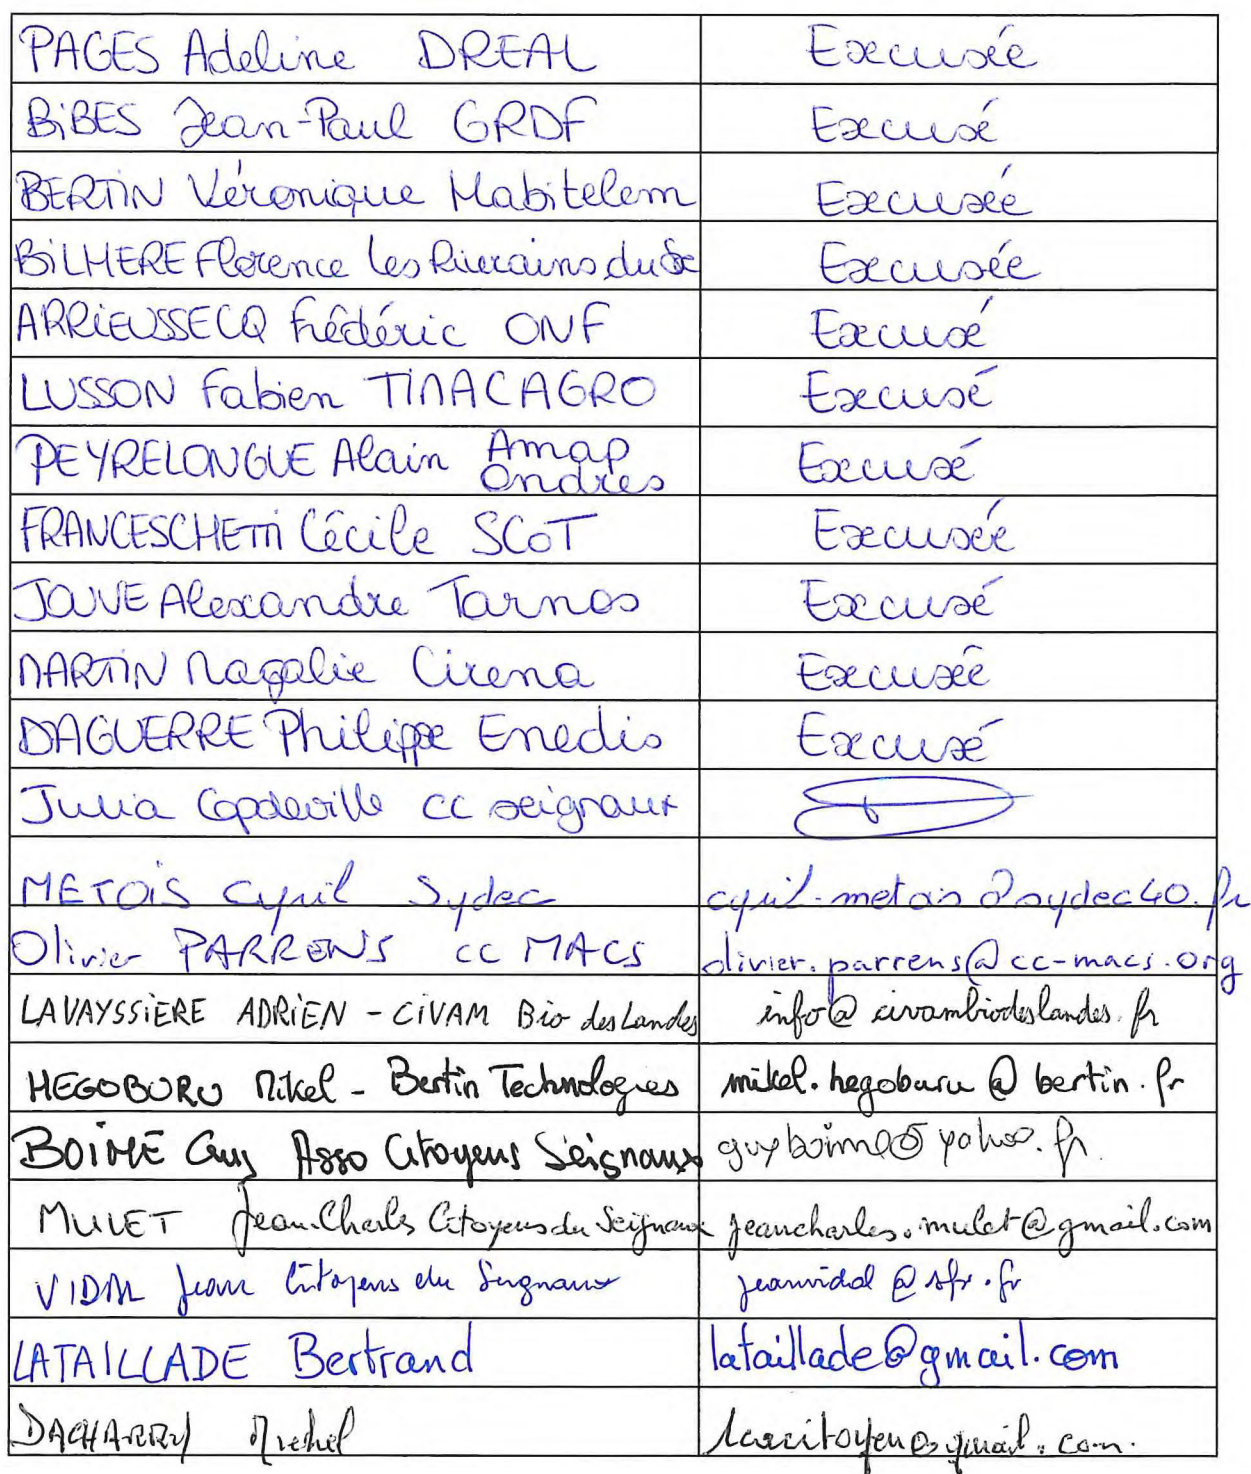 PAGES Adeline DREAL Excusée
BIBES Jean-Paul GRDF Excusé
BERTIN Véronique Habitelem Excusée
BILHERE Florence les Riverains du Sx Excusée
ARRIEUSSECQ Frédéric ONF Excusé
LUSSON Fabien TIMACAGRO Excusé
PEYRELONGUE Alain Amap Ondres Excusé
FRANCESCHETTI Cécile SCoT Excusée
JOUVE Alexandre Tarnos Excusé
MARTIN Magalie Cirena Excusée
DAGUERRE Philippe Enedis Excusé
Julia Capdeville cc seignanx
METOIS Cyril Sydec cyril.metois@sydec40.fr
Olivier PARRENS cc MACS olivier.parrens@cc-macs.org
LAVAYSSIERE ADRIEN - CIVAM Bio des Landes info@civambiodeslandes.fr
HEGOBURU Mikel - Bertin Technologies mikel.hegoburu@bertin.fr
BOIME Guy Asso Citoyens Seignanx guyboime@yahoo.fr
MULET Jean.Charles Citoyens du Seignanx jeancharles.mulet@gmail.com
VIDAL Jean Citoyens du Seignanx jeanvidal@sfr.fr
LATAILLADE Bertrand lataillade@gmail.com
DACHARRY Michel @gmail.com.